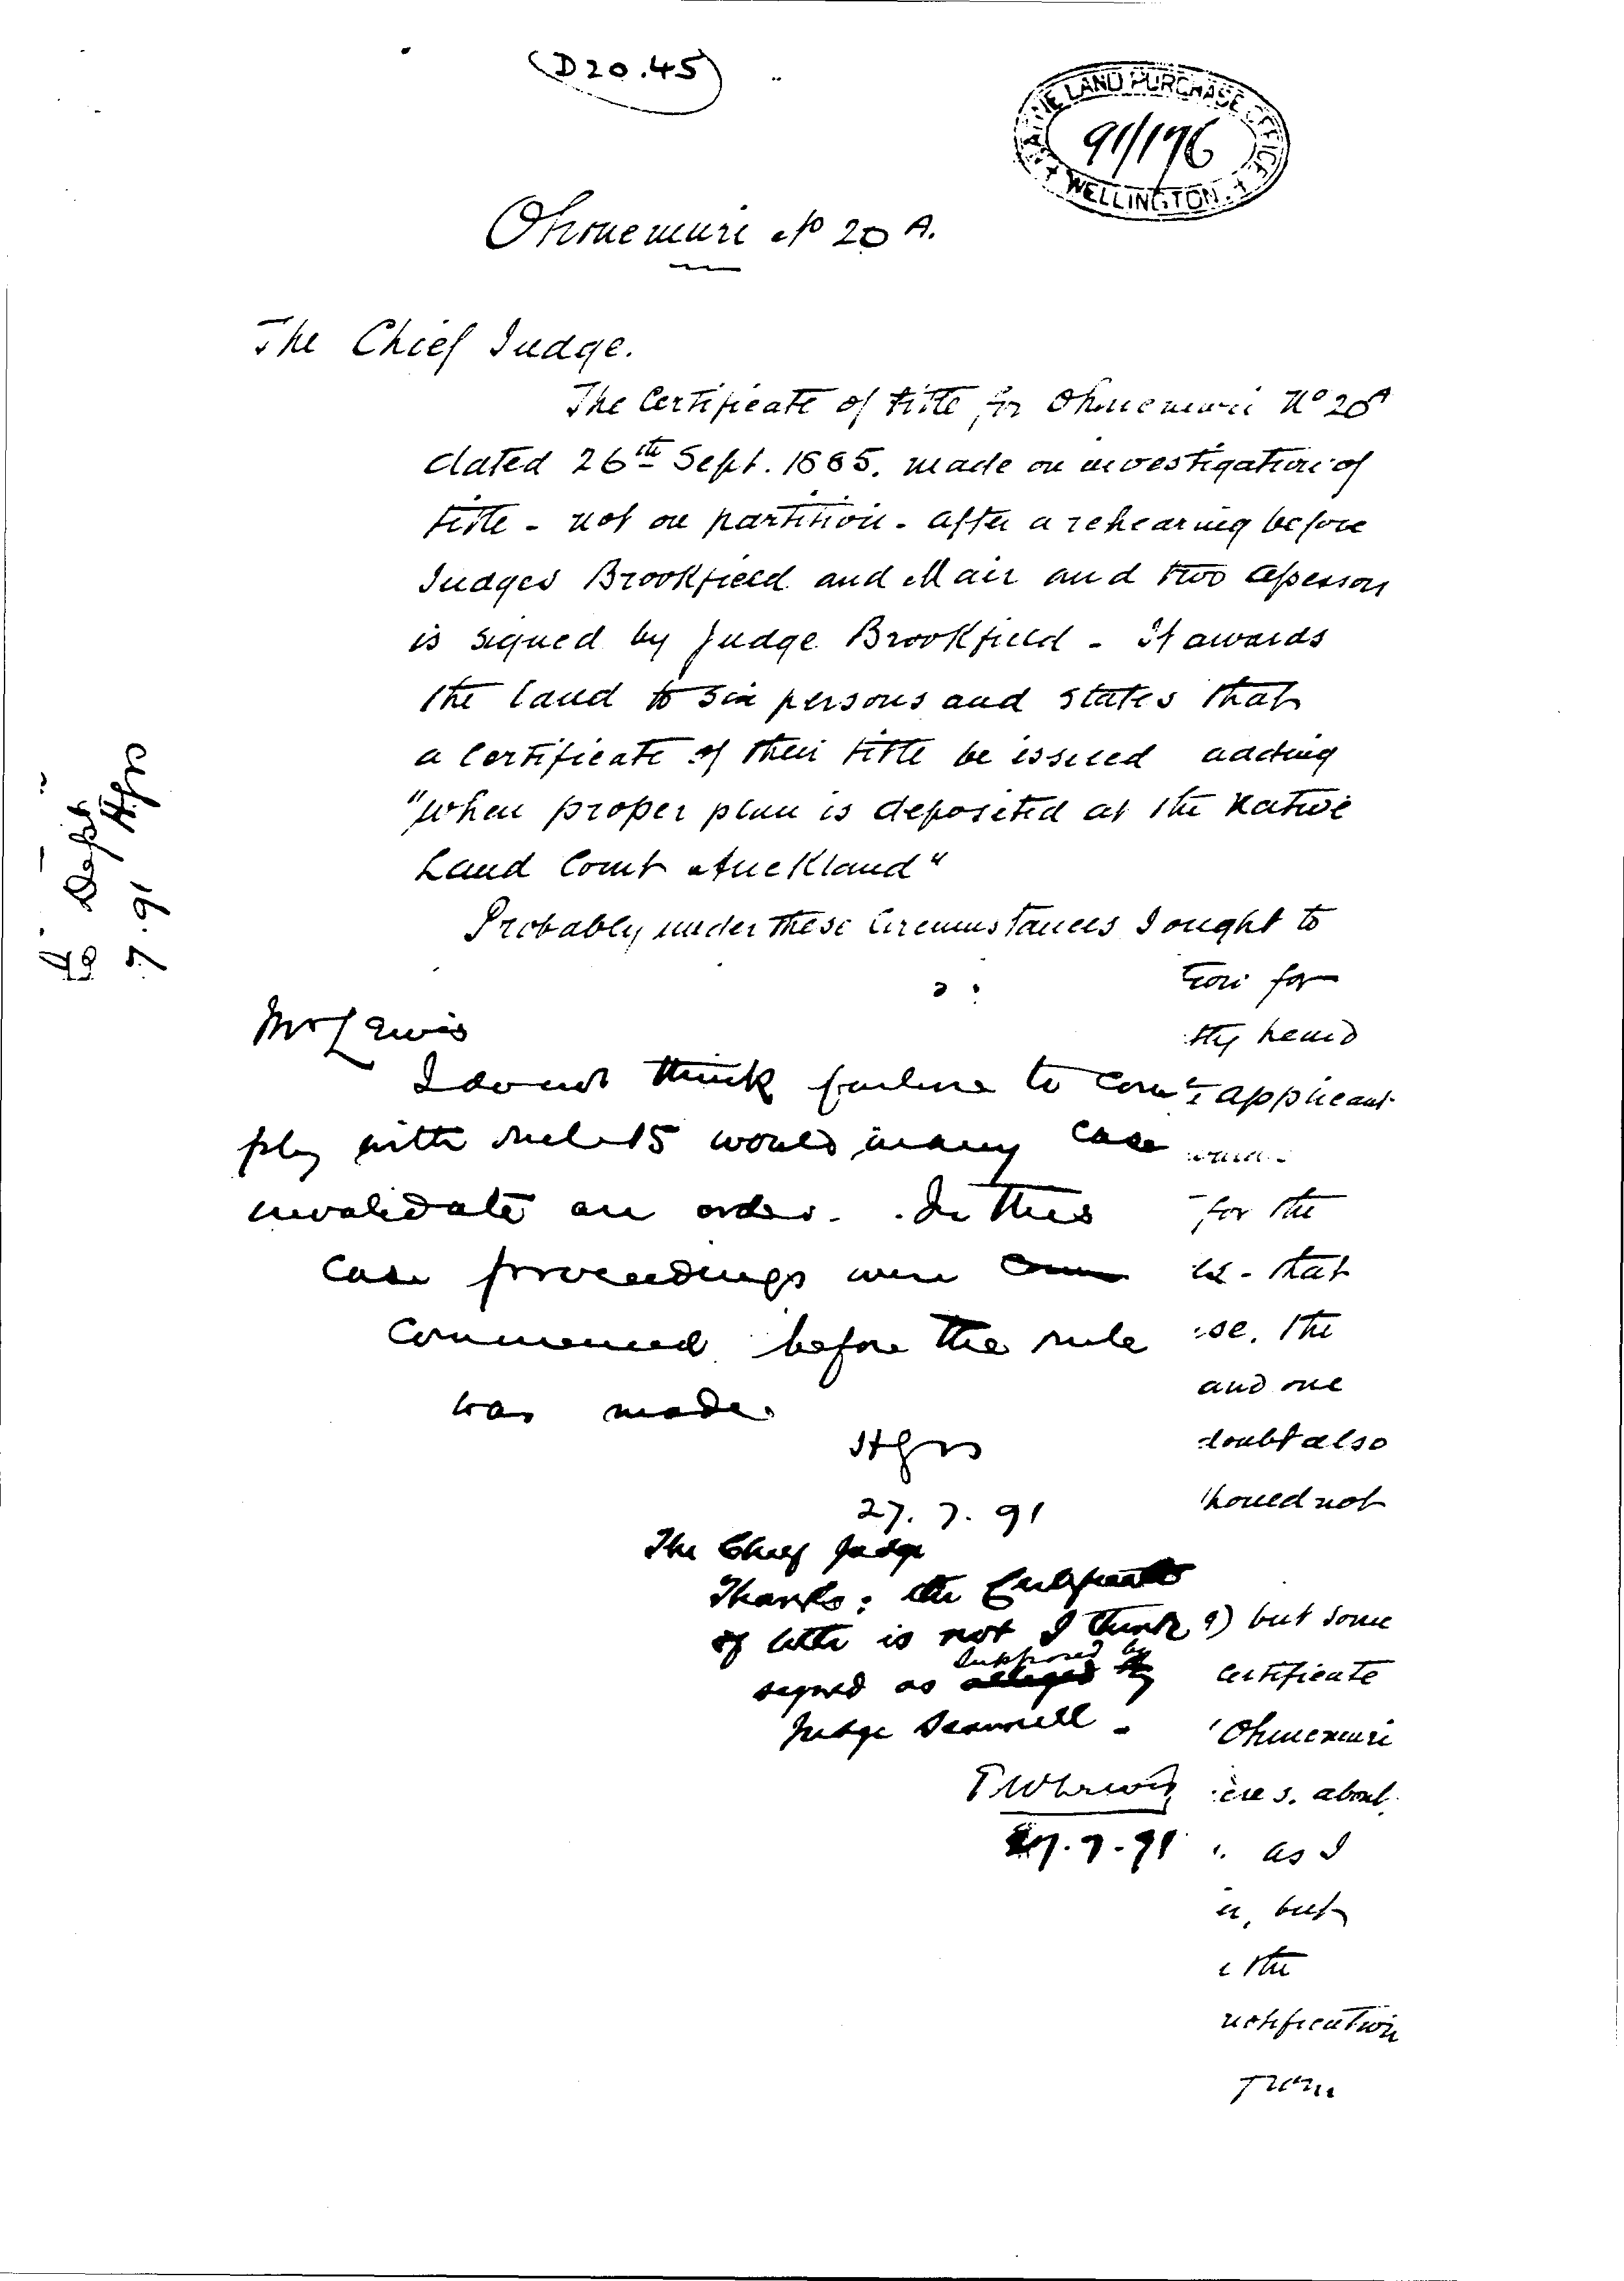 (D20.45)
NATIVE LAND PURCHASE OFFICE
91/196
WELLINGTON
Ohinemuri No 20 A.
The Chief Judge.
The Certificate of title for Ohinemuri No 20A
dated 26th Sept. 1885. made on investigation of
title - not on partition - after a rehearing before
Judges Brookfield and Mair and two assessors
is signed by Judge Brookfield - It awards
the land to six persons and states that
a Certificate of their title be issued adding
"when proper plan is deposited at the Native
Land Court Auckland"
Probably under these circumstances I ought to
tion for
tly heard
applicant
for the
that
se. the
and one
doubt also
should not
but some
certificate
Ohinemuri
about
as I
but
the
notification
from
Mr Lewis
I do not think failure to com-
ply with rule 15 would in any case
invalidate an order. In this
case proceedings were
commenced before the rule
was made.
HGS
27. 7. 91
The Chief Judge
Thanks: the Certificate
of title is not I think
signed as supposed by
Judge Scannell -
T W Lewis
27.7.91
7 . 91 HGS